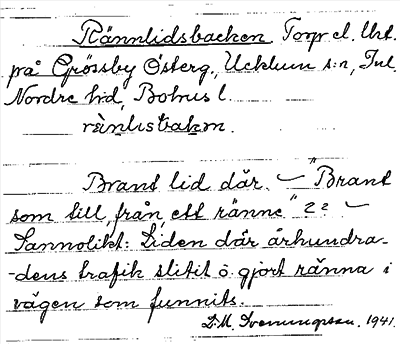 Rännlidsbacken Torp el. Uht.
på Grössby Österg., Ucklum s:n, Inl.
Nordre hd, Bohus l.
rànlisbakɷn.
Brant lid där. — "Brant
som till, från, ett ränne" ?? —
Sannolikt: Liden där århundra-
-dens trafik slitit o gjort ränna i
vägen som funnits.
D.M. Svenungsson. 1941.